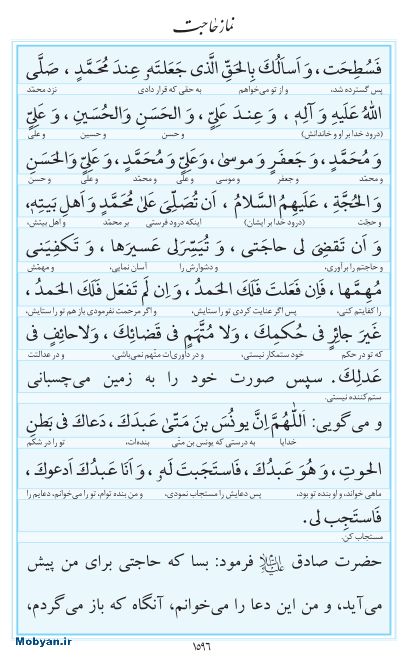 نماز حاجت
فَسُطِحَت، وَ اَسأَلُكَ بِالحَقِّ الَّذى جَعَلتَهُ عِندَ مُحَمَّدٍ، صَلَّى
پس گسترده شد، و از تو می‌خواهم به حقی که قرار دادی نزد محمّد
اللهُ عَلَيهِ وَ آلِهِ، وَ عِندَ عَلِيٍّ، وَ الحَسَنِ وَالحُسَينِ، وَ عَلِيٍّ
(درود خدا بر او و خاندانش) و علی و حسن و حسین و علی
وَ مُحَمَّدٍ، وَ جَعفَرٍ وَ موسىٰ، وَعَلِيٍّ وَ مُحَمَّدٍ، وَ عَلِيٍّ وَالحَسَنِ
و محمّد و جعفر و موسی و علی و محمّد و علی و حسن
وَ الحُجَّةِ، عَلَيهِمُ السَّلامُ، اَن تُصَلِّىَ عَلىٰ مُحَمَّدٍ وَ اَهلِ بَيتِهِ،
و حجّت (درود خدا بر ایشان) اینکه درود فرستی بر محمّد و اهل بیتش،
وَ اَن تَقضِىَ لى حاجَتى، وَ تُيَسِّرَلى عَسيرَها، وَ تَكفِيَنى
و حاجتم را برآوری، و دشوارش را آسان نمایی، و مهمّش
مُهِمَّها، فَاِن فَعَلتَ فَلَكَ الحَمدُ، وَ اِن لَم تَفعَل فَلَكَ الحَمدُ،
را کفایتم کنی، پس اگر عنایت کردی تو را ستایش، و اگر مرحمت نفرمودی باز هم تو را ستایش،
غَيرَ جائِرٍ فى حُكمِكَ، وَلا مُتَّهَمٍ فى قَضائِكَ، وَلاحائِفٍ فى
که تو در حکم خود ستمکار نیستی، و در داوری‌ات متّهم نمی‌باشی، و در عدالتت
عَدلِكَ. سپس صورت خود را به زمین می‌چسبانی
ستم‌کننده نیستی.
و می‌گویی: اَللّٰهُمَّ اِنَّ يونُسَ بنَ مَتّىٰ عَبدَكَ، دَعاكَ فى بَطنِ
خدایا به درستی که یونس بن متّی بنده‌ات، تو را در شکم
الحوتِ، وَ هُوَ عَبدُكَ، فَاستَجَبتَ لَهُ، وَ اَنَا عَبدُكَ اَدعوكَ،
ماهی خواند، و او بنده تو بود، پس دعایش را مستجاب نمودی، و من بنده توام، تو را می‌خوانم، دعایم را
فَاستَجِب لى.
مستجاب کن.
حضرت صادق علیه‌السلام فرمود: بسا که حاجتی برای من پیش
می‌آید، و من این دعا را می‌خوانم، آنگاه که باز می‌گردم،
Mobyan.ir
۱۵۹۶